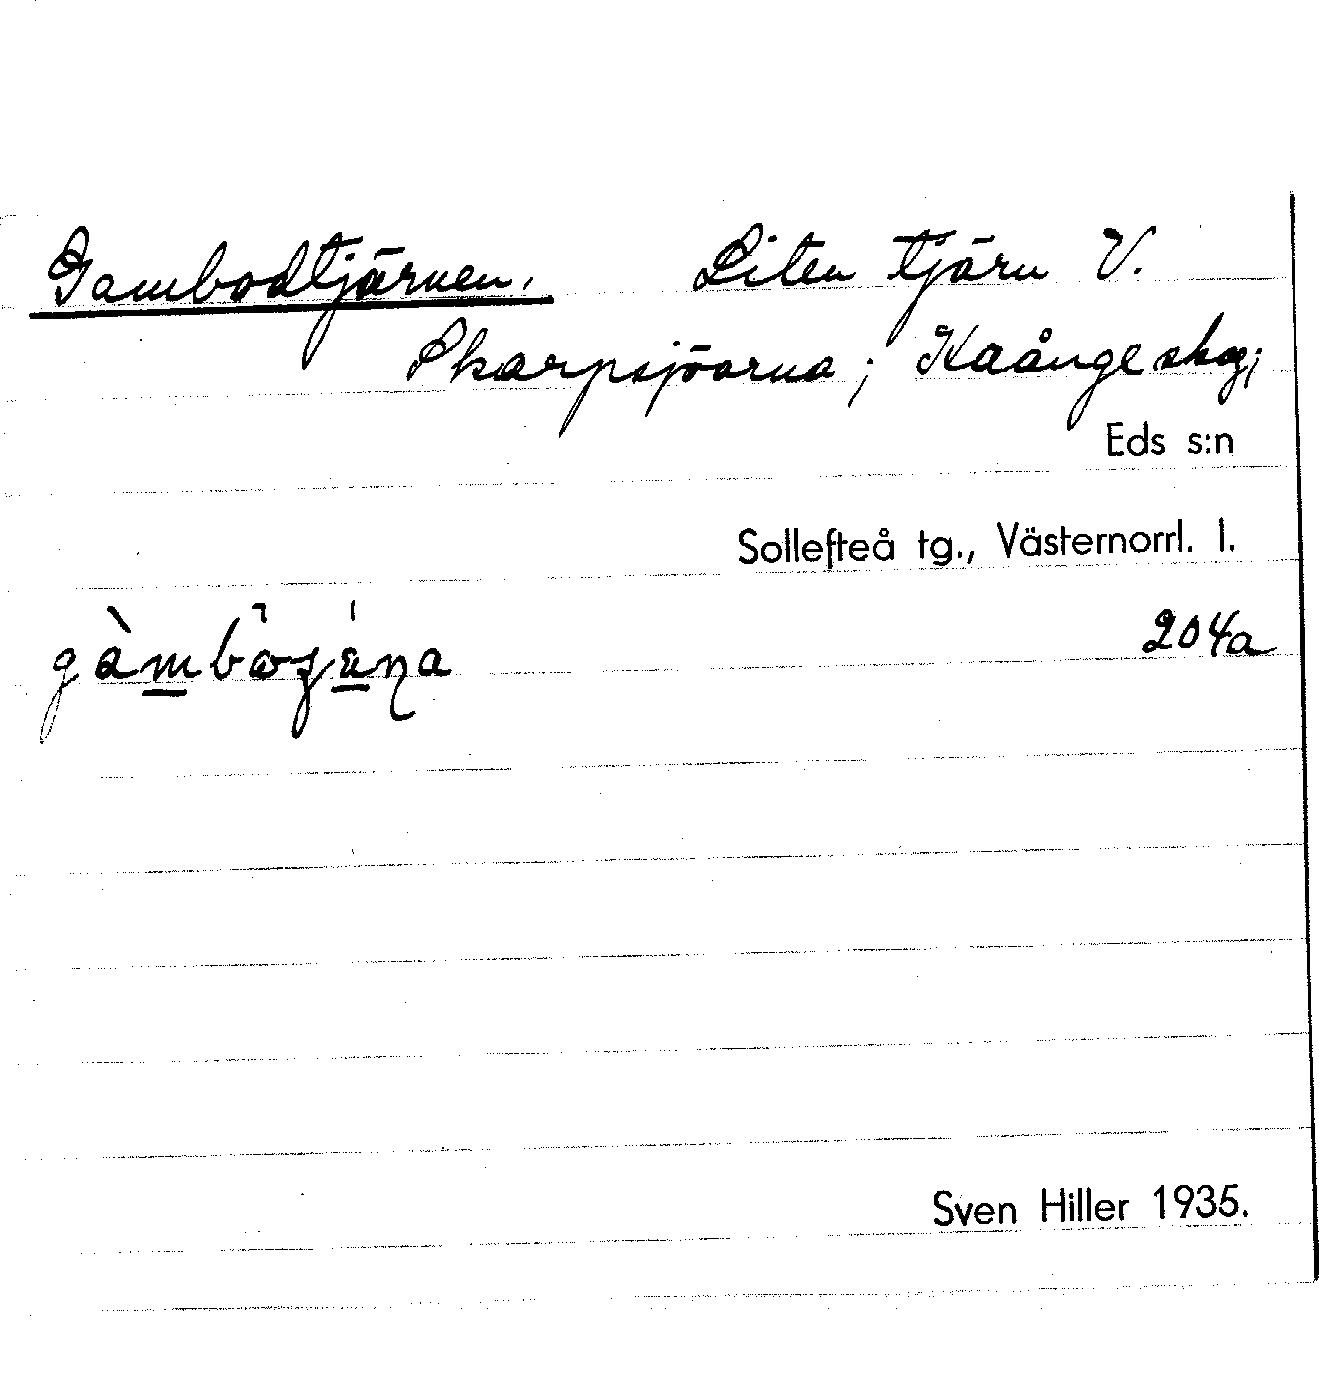 Gambodtjärnen. Liten tjärn V.
Skarpsjöarna; Kaånge skog;
Eds s:n
Sollefteå tg., Västernorrl. l.
204a
Sven Hiller 1935.